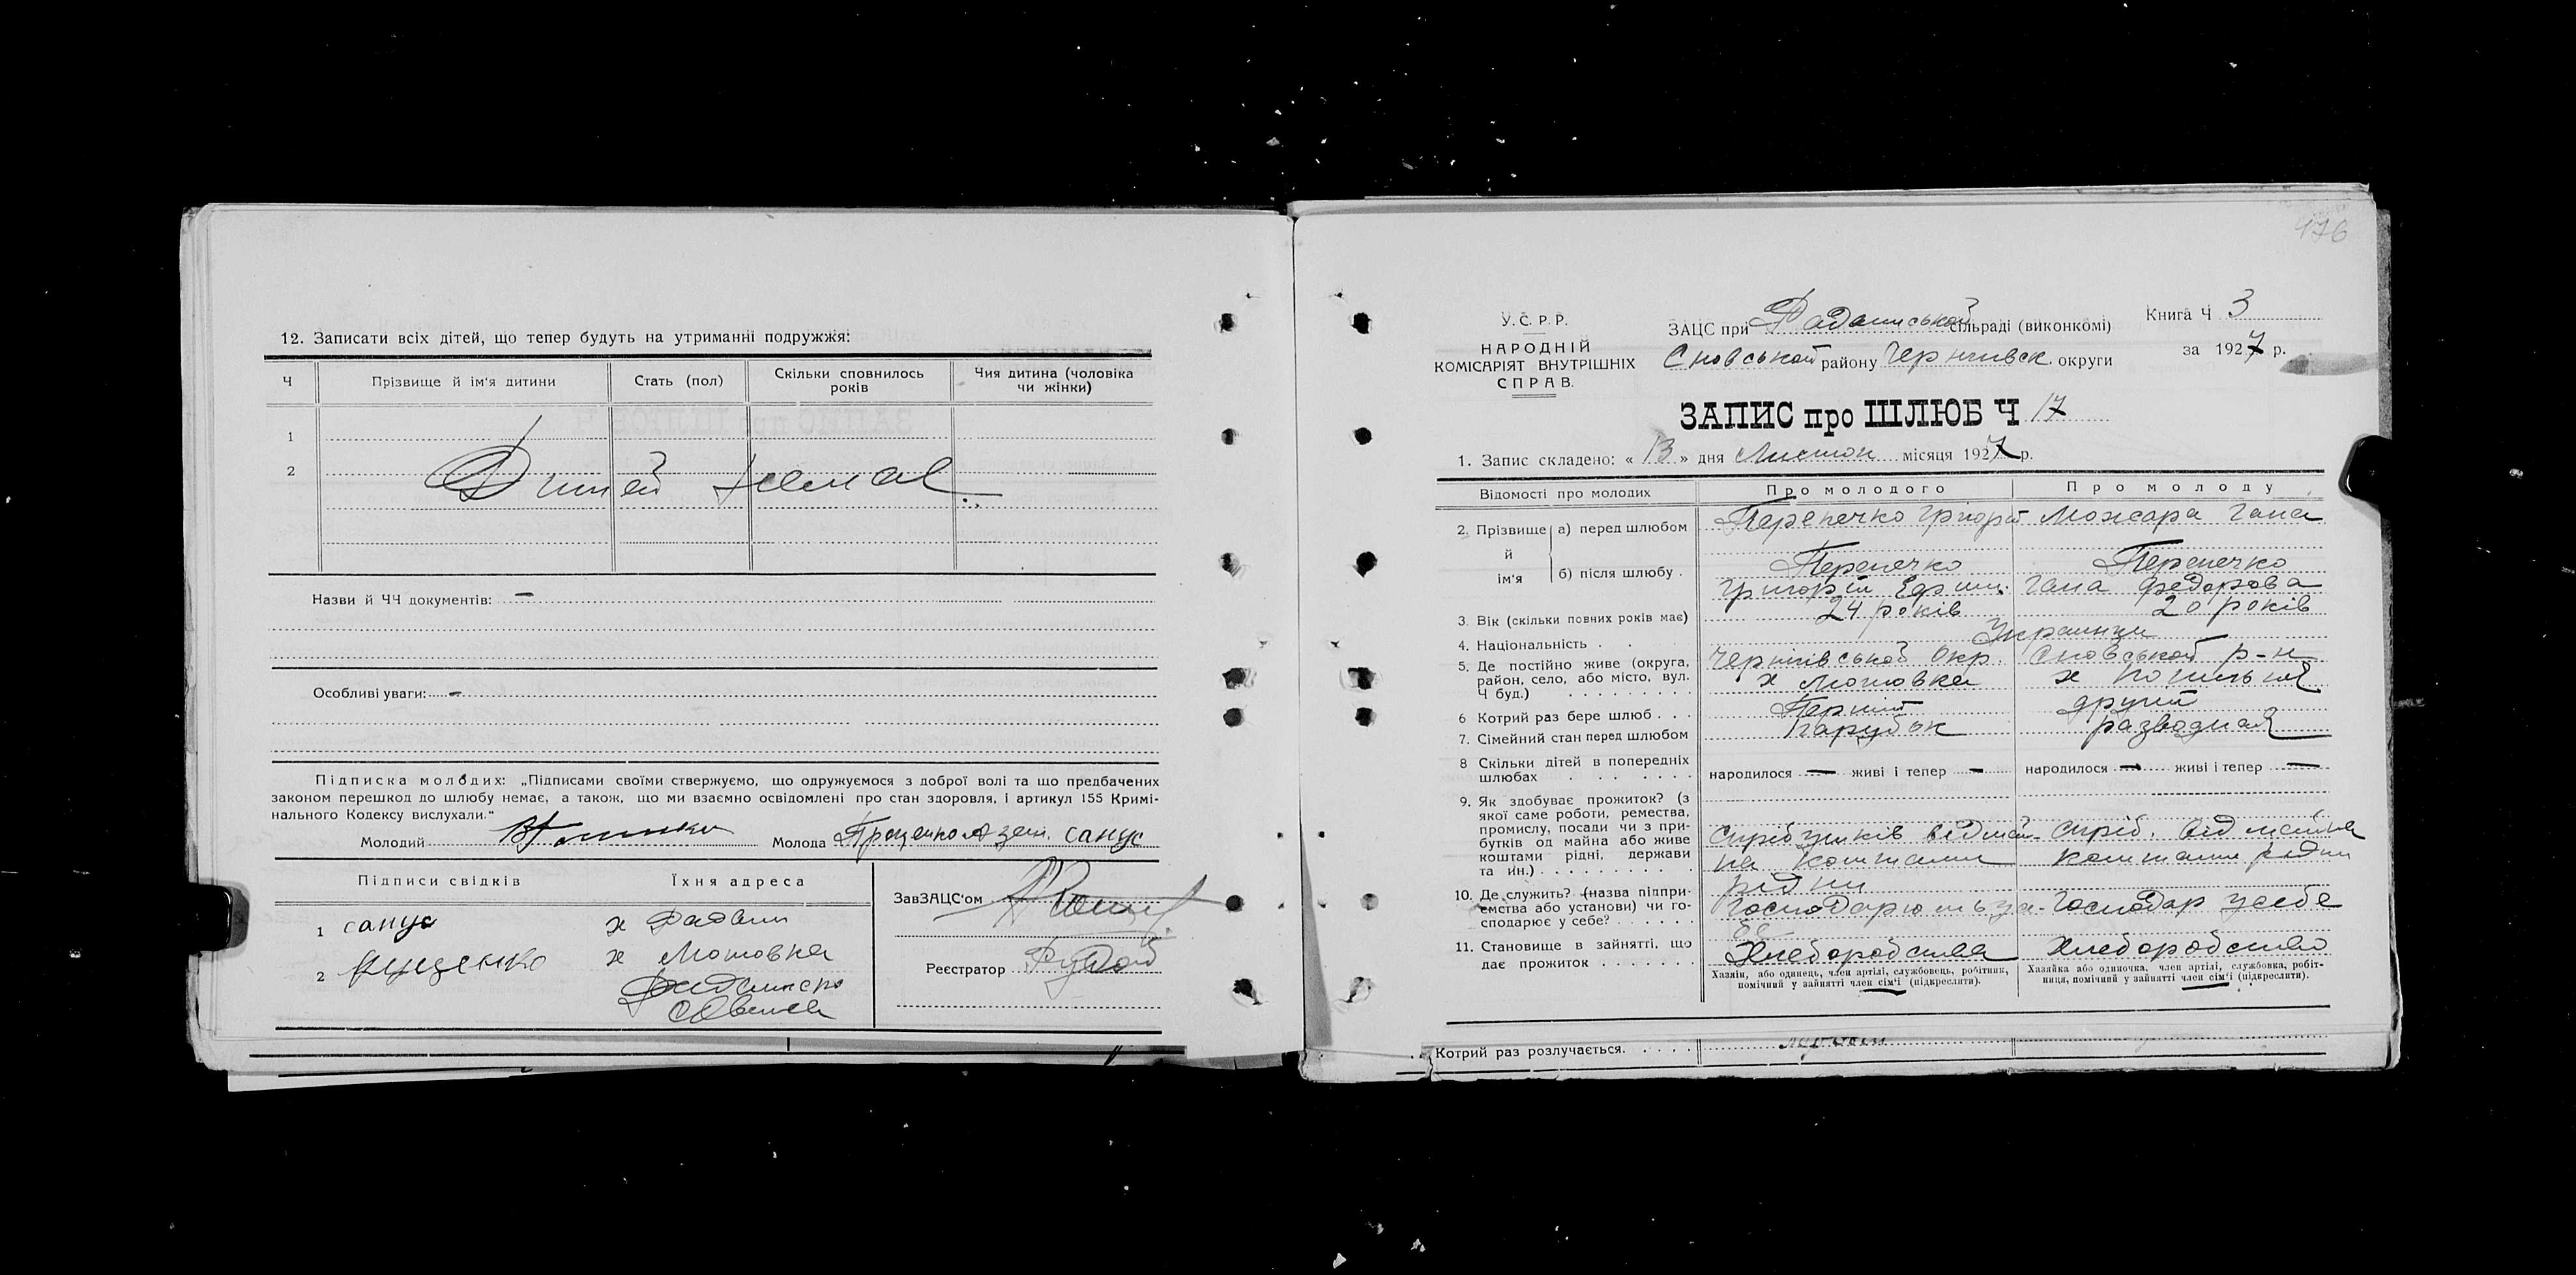 12. Записати всіх дітей, що тепер будуть на утриманні подружжя:
Ч Прізвище й ім'я дитини Стать (пол) Скільки сповнилось років Чия дитина (чоловіка чи жінки)
1
2 Дитей немає
Назви й ЧЧ документів: —
Особливі уваги: —
Підписка молодих: „Підписами своїми ствержуємо, що одружуємося з доброї волі та що предбачених
законом перешкод до шлюбу немає, а також, що ми взаємно освідомлені про стан здоровля, і артикул 155 Кримі-
нального Кодексу вислухали."
Молодий Молода Проценко санус
Підписи свідків Їхня адреса
1 санус х
2 х Мотовка
ЗавЗАЦС'ом
Реєстратор Рудой
176
У. С. Р. Р.
НАРОДНІЙ
КОМІСАРІЯТ ВНУТРІШНІХ
СПРАВ.
ЗАЦС при сільраді (виконкомі)
Сновської району Чернигівск. округи
Книга Ч 3
за 1927 р.
ЗАПИС про ШЛЮБ Ч 17
1. Запис складено: « 13 » дня Листоп місяця 1927 р.
Відомості про молодих Про молодого Про молоду
2. Прізвище й ім'я а) перед шлюбом Перепечко Григорій Можара Гана
б) після шлюбу . Перепечко Перепечко
Григорій Гана Федорова
3. Вік (скільки повних років має) 24 років 20 років
4. Національність . . Украинци
5. Де постійно живе (округа, Чернігівської Окр. Сновської р-н
район, село, або місто, вул. х Мотовка х
Ч буд.) . . . . . . . . .
6 Котрий раз бере шлюб . . . Перший другий
7. Сімейний стан перед шлюбом Парубок разводная
8 Скільки дітей в попередніх
шлюбах . . . . . . . народилося — живі і тепер — народилося — живі і тепер —
9. Як здобуває прожиток? (з
якої саме роботи, ремества,
промислу, посади чи з при-
бутків од майна або живе
коштами рідні, держави
та ин.) . . . . . . . . .
на коштами коштами рідни
рідни
10. Де служить? (назва підпри-
ємства або установи) чи го-
сподарює у себе? . . . . . . Господар усебе
11. Становище в зайнятті, що
дає прожиток . . . . . . . Хлебородства Хлебородство
Хазяїн, або одинець, член артілі, службовець, робітник,
помічний у зайнятті член сім'ї (підкреслити).
Хазяйка або одиночка, член артілі, службовка, робіт-
ниця, помічний у зайнятті член сім'ї (підкреслити).
Котрий раз розлучається. . . . .